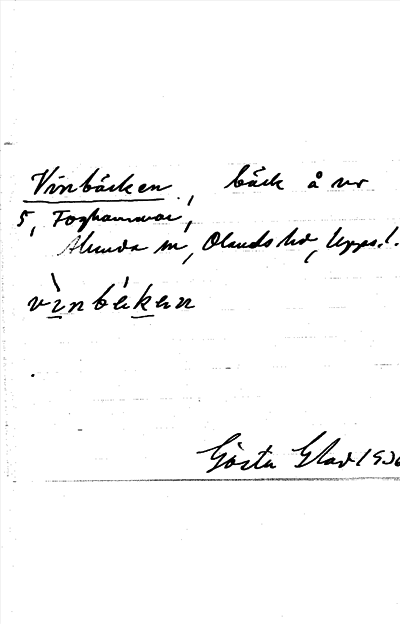 Vinbäcken, bäck å nr
5, Foghammar,
Alunda sn, Olands hd, Upps.l.
vìnbékən
Gösta Glad 1936